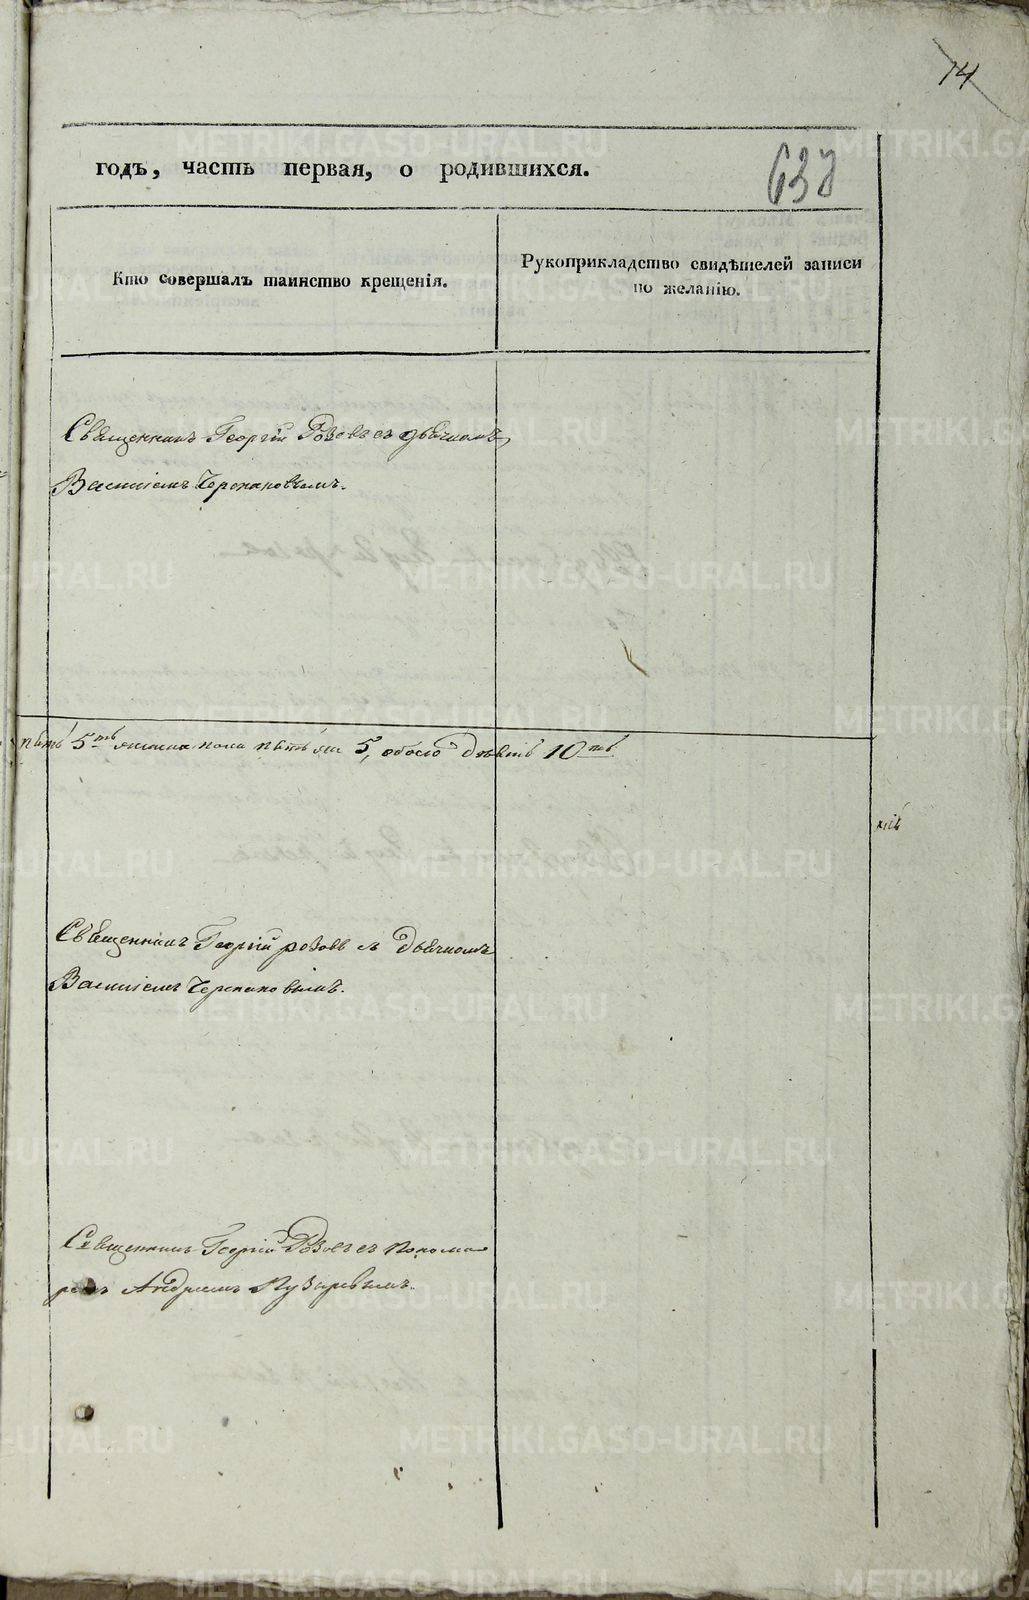 14
годъ, часть первая, о родившихся.
637
Кто совершалъ таинство крещенія.
Рукоприкладство свидѣтелей записи
по желанію.
Священникъ Георгій Розовъ съ дьячкомъ
Василіемъ Черепановымъ.
пять 5ть женска пола пять 5, обоего 10ть
Священникъ Георгій розовъ съ Дьячкомъ
Василіемъ Черепановымъ.
Священникъ Георгій Розовъ съ понома
ремъ Андреемъ Пузыревымъ.
METRIKI.GASO-URAL.RU